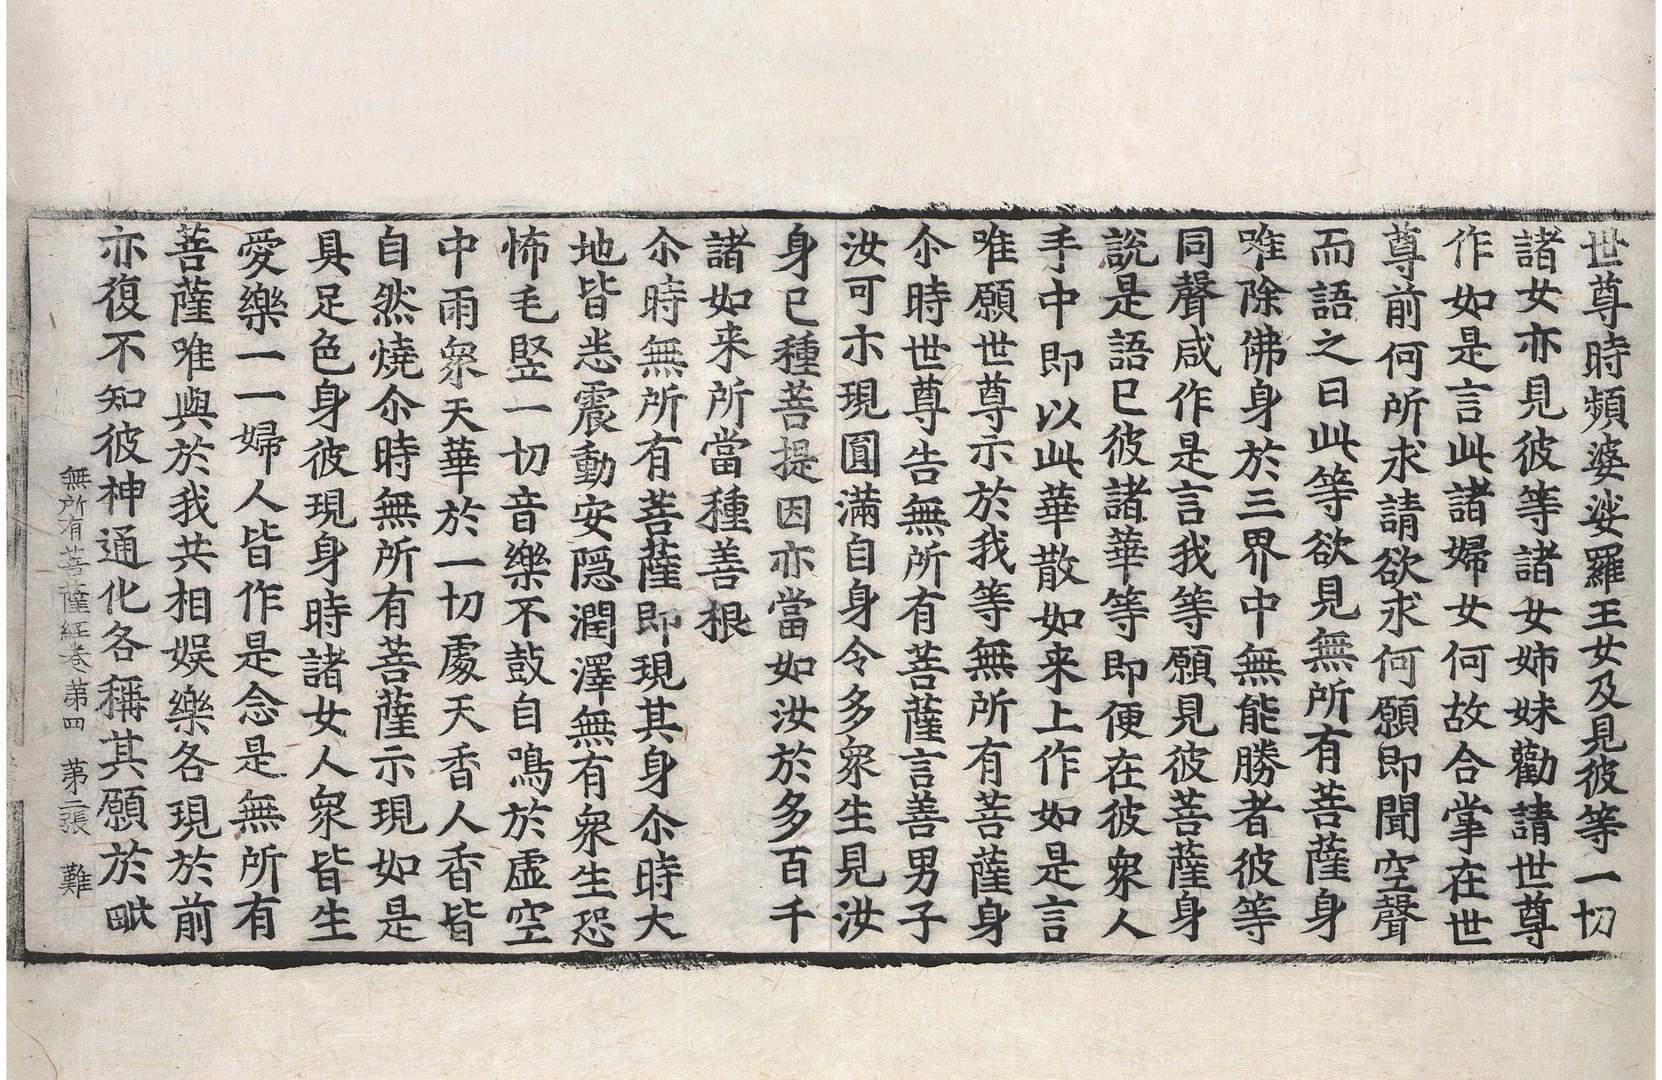 世尊時頻婆娑羅王女及見彼等一切
諸女亦見彼等諸女姉妹勸請世尊
作如是言此諸婦女何故合掌在世
尊前何所求請欲求何願即聞空聲
而語之曰此等欲見無所有菩薩身
唯除佛身於三界中無能勝者彼等
同聲咸作是言我等願見彼菩薩身
說是語已彼諸華等即便在彼衆人
手中即以此華散如来上作如是言
唯願世尊示於我等無所有菩薩身
尒時世尊告無所有菩薩言善男子
汝可示現圓滿自身令多衆生見汝
身已種菩提因亦當如汝於多百千
諸如来所當種善根
尒時無所有菩薩即現其身尒時大
地皆悉震動安隠潤澤無有衆生恐
怖毛竪一切音樂不鼓自鳴於虛空
中雨衆天華於一切處天香人香皆
自然燒尒時無所有菩薩示現如是
具足色身彼現身時諸女人衆皆生
愛樂一一婦人皆作是念是無所有
菩薩唯與於我共相娛樂各現於前
亦復不知彼神通化各稱其願於毗
無所有菩薩經卷第四 第二張 難